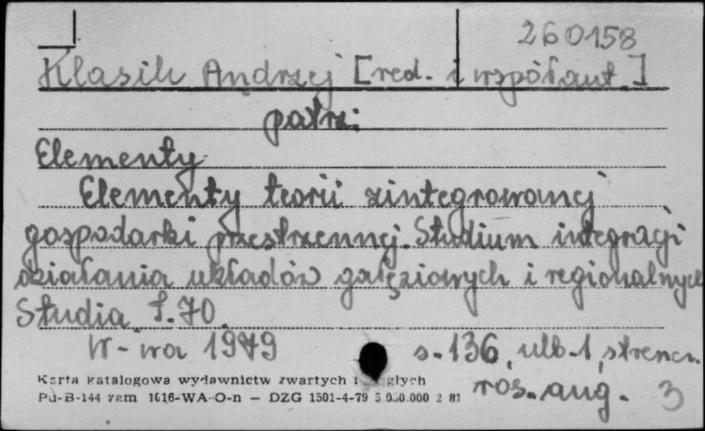 260158
Klasik Andrzej [red. i współaut.]
patrz:
Elementy
Elementy teorii zintegrowanej
gospodarki przestrzennej. Studium integracji
działania układów gałęziowych i regionalnych
Studia T.70
W-wa 1979 s.136, ulb.1, streszcz.
ros. ang. 3
Karta katalogowa wydawnictw zwartych i ciągłych
Pu-B-144 zam 1616-WA-O-n — DZG 1501-4-79 5 000.000 2 81